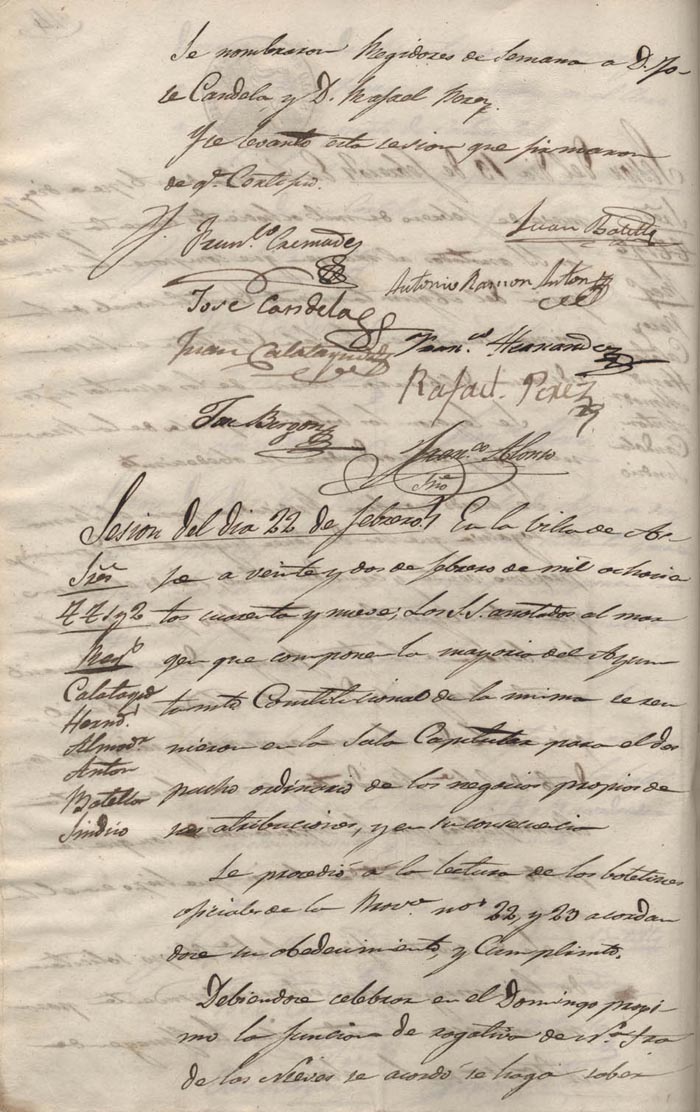 Se nombraron Regidores de Semana a D. Jo-
se Candela y D. Rafael Perez
Y se levanto esta sesion que firmaron
de q.e Certifico.
Fran.co Cremades
Juan Botella
Antonio Ramon Anton
Jose Candela
Juan Calatayud
Fran.co Hernandez
Rafael Perez
Jose Burgon
Fran.co Alonso
Srio
Sesion del dia 22 de febrero. En la villa de As-
pe a veinte y dos de febrero de mil ochocien
tos cuarenta y nueve; Los S.S. anotados al mar
gen que componen la mayoria del Ayun
tamto Constitucional de la misma se reu
nieron en la Sala Capitular para el des
pacho ordinario de los negocios propios de
sus atribuciones, y en su consecuencia
Sres
Reg.s
Calatayud
Hernd.z
Almod.r
Anton
Botella
Sindico
Se procedió a la lectura de los boletines
oficiales de la Prov.a nos 22, y 23 acordan
dose su obedecimiento, y Cumplimto.
Debiendose celebrar en el Domingo proxi-
mo la funcion de rogativa de N.a Sra
de las Nieves se acordó se haga saber